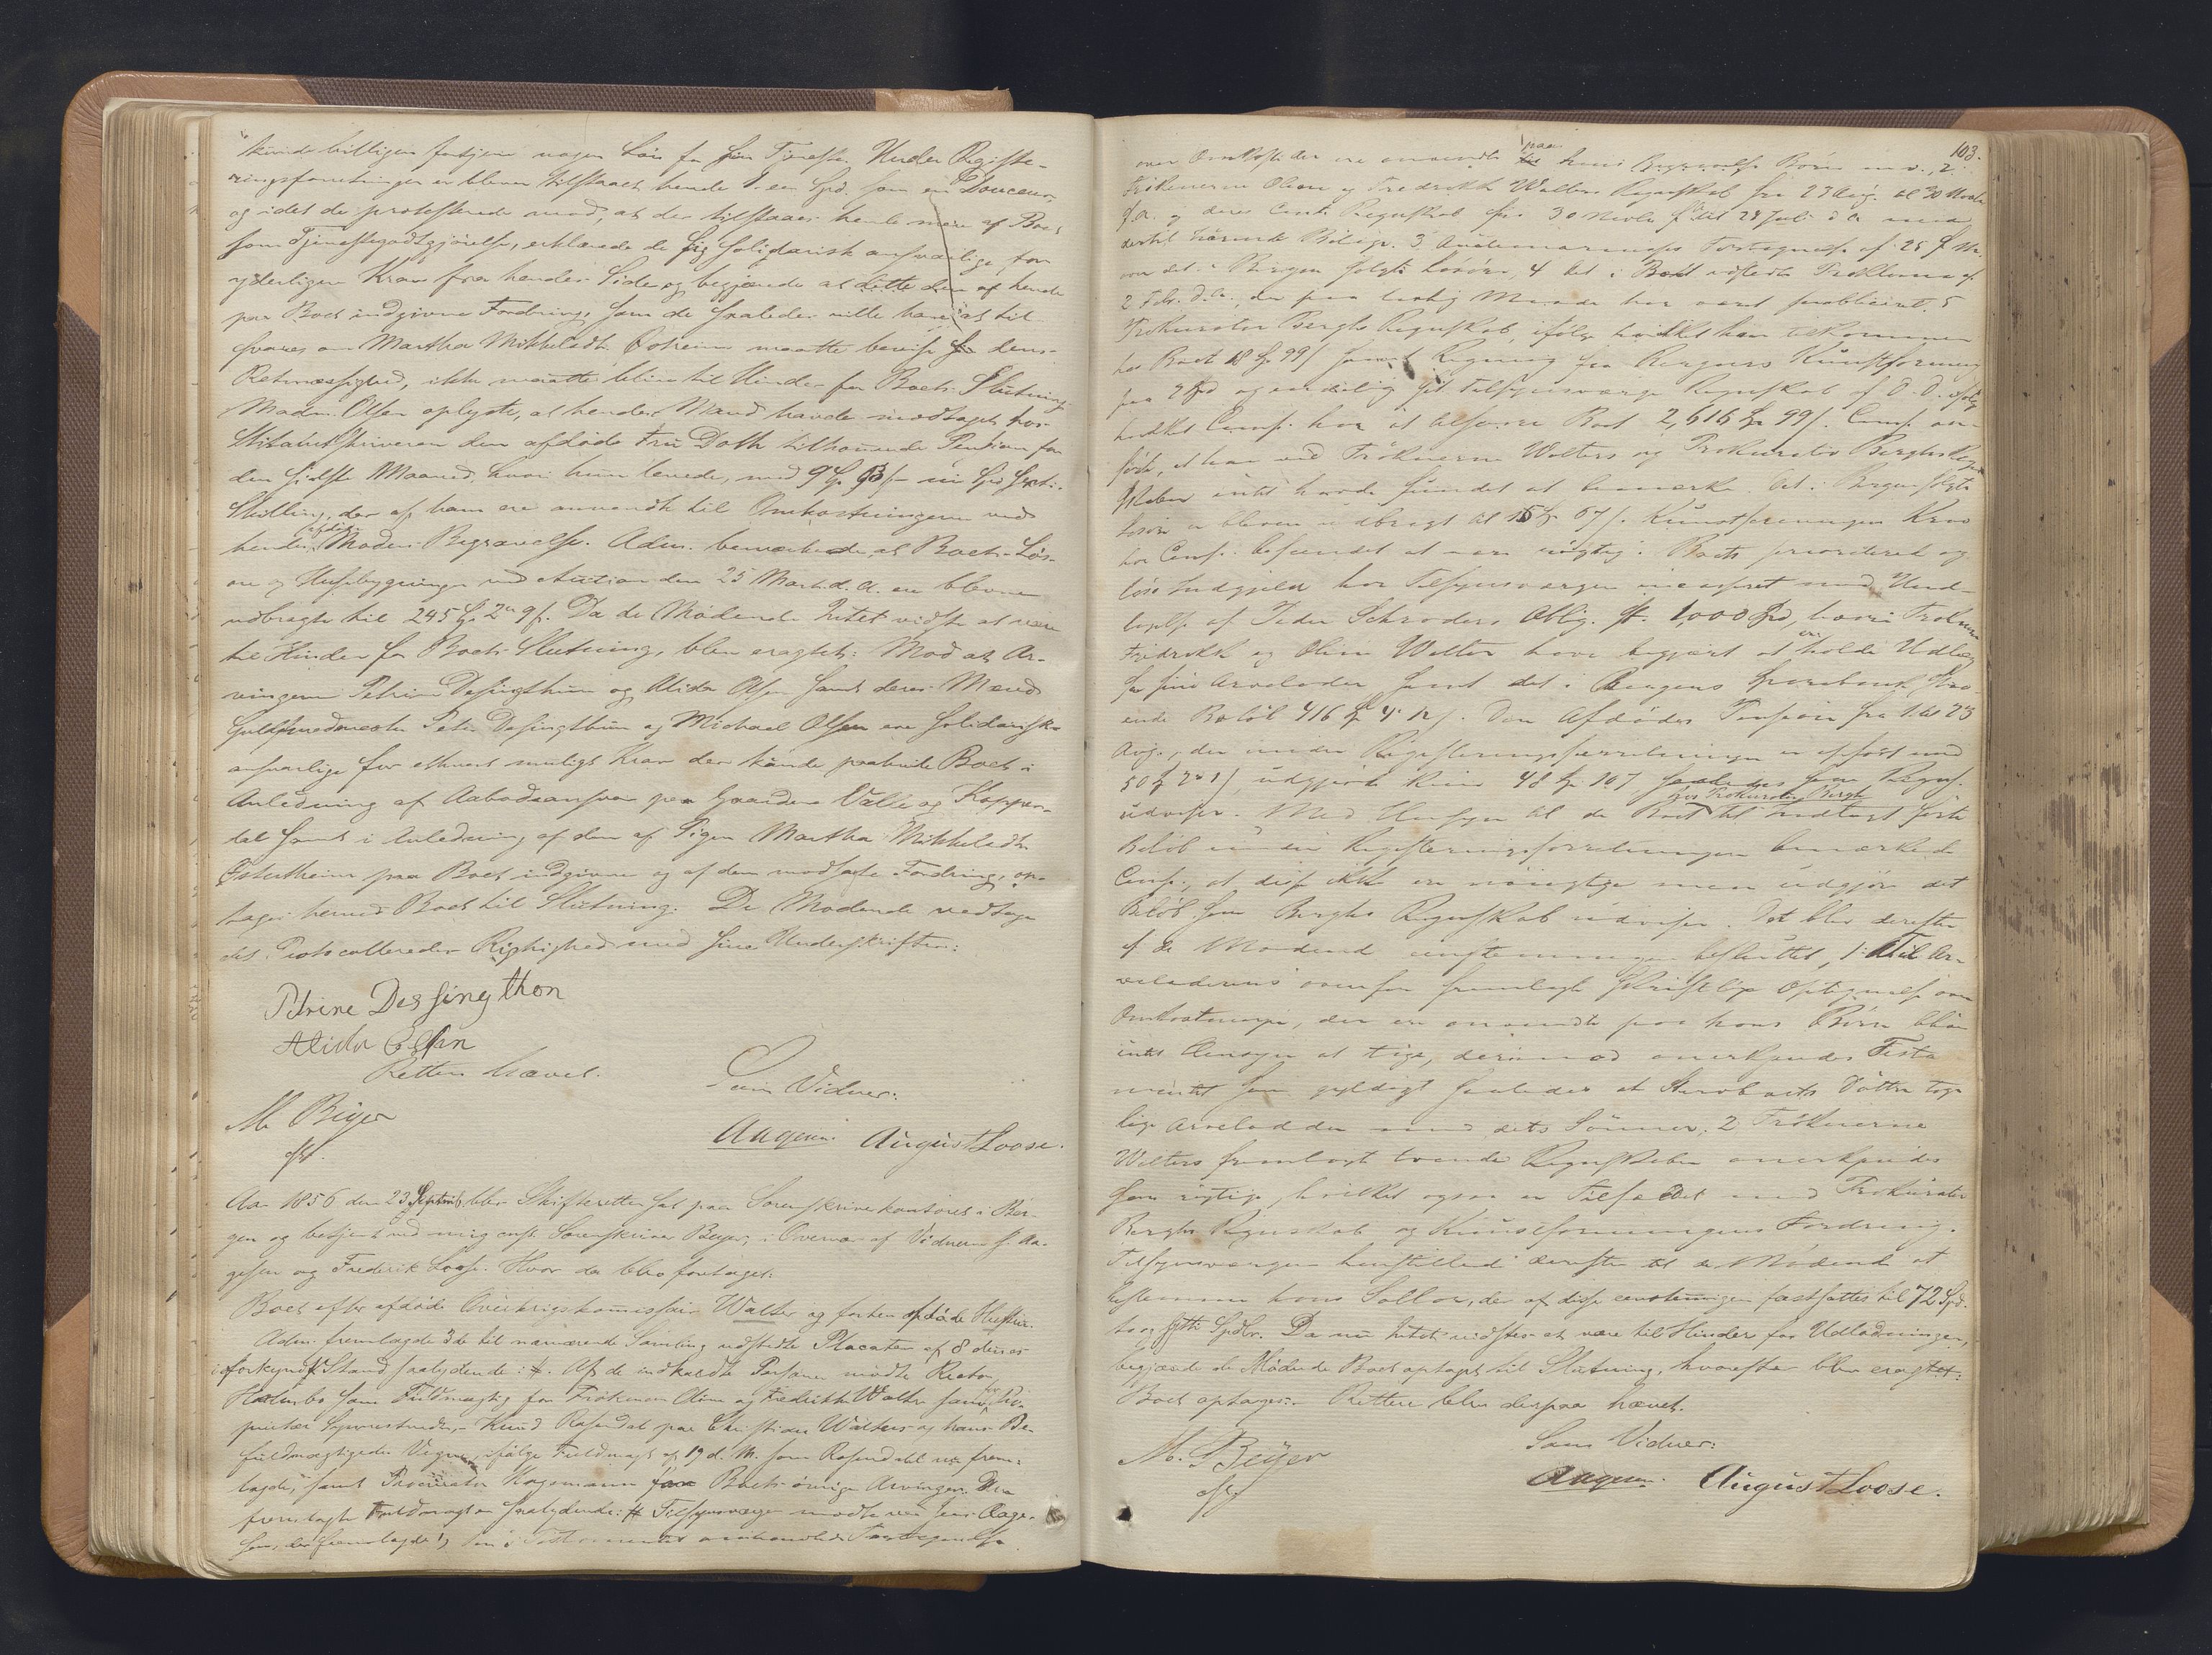 kunde billigen fortjene nogen Løn for sin Tjeneste. Under Registe-
ringsforretningen er bleven tilstaaet hende 1 een Spd. som en Douceur,
og idet de protesterede mod, at der tilstaaes hende mere af Boet
som Tjenestegodtgjørelse, erklærede de sig solidarisk ansvarlige for
yderligere Krav fra hendes Side og begjærede at dette den af hende
paa Boet indgivne Fordring, som de saaledes ville have at til
svares om Martha Mikkelsdtr. maatte bevise dens
Retmæssighed, ikke maatte blive til Hinder for Boets Slutning.
Madm. Olsen oplyste, at hendes Mand havde modtaget hos
Stiftamtskriveren den afdøde Fru Doth tilkommende Pension for
den sidste Maaned, hvori hun levede, med 9
Skilling, der af ham ere anvendt til Omkostningerne ved
hendes afdøde Moders Begravelse. Adm. bemærkede at Boets Løs-
øre og Husebygninger ved Auction den 25 Marts d. A. ere blevne
udbragte til 245 Spd. 2 ort 9 s. Da de Mødende Intet vidste at være
til Hinder for Boets Slutning, blev eragtet: Mod at Ar-
vingerne Petrine Dessingthun og Alida Olsen samt deres Mænd
Guldsmedmester Peter Dessingthun og Michael Olsen ere solidarisk
ansvarlige for ethvert muligt Krav der kunde paahvile Boet i
Anledning af Aabodsansvar paa Gaardene Valle og Kopper-
dal samt i Anledning af den af Pigen Martha Mikkelsdtr.
paa Boet indgivne og af dem modsagte Fordring, op-
tages herved Boet til Slutning. De Mødende vedtoge
det Protocolleredes Rigtighed med sine Underskrifter:
Petrine Dessingthon
Alida Olsen
Retten hævet.
M. Beyer
cst.
Som Vidner:
Aagesen. August Loose.
Aar 1856 den 23 Septemb. blev Skifteretten sat paa Sorenskriverkontoret i Ber-
gen og betjent ved mig const. Sorenskriver Beyer, i Overvær af Vidnerne J. Aa-
gesen og Frederik Loose. Hvor da blev foretaget:
Boet efter afdøde Overkrigskommissair Walter og forhen afdøde Hustrue.
Adm. fremlagde 3de til nærværende Samling udstedte Placater af 8 dennes
i forkyndt Stand saalydende: #. Af de indkaldte Personer mødte Rector
Holmboe som Fuldmægtig for Frøknerne Oline og Fredrikke Walter samt for
Knud Rosendal paa Christian Walters og hans Be-
fuldmægtigedes Vegne, ifølge Fuldmagt af 19 d. M. som Rosendal frem-
lagde, samt Procurator Hagemann for Boets øvrige Arvinger. De
fremlagte Fuldmagter saalydende: # Tilsynsværge mødte ved Jens Aage-
sen, der fremlagde 1, den i Testamentet omhandlede Fortegnelse
103.
over Omkostn. der ere anvendte paa hans Børn m. v., 2
Frøknerne Oline og Fredrikke Walters Regnskab fra 23 Aug. til 30 Novbr.
f. A. og deres Cont. Regnskab fra 30 Novbr. f. A. til 28 Juli d. A. med
dertil hørende Bilage. 3 Auctionarius's Fortegnelse af 25 f. M.
over det i Bergen solgte Løsøre, 4 det i Boet udstedte Proklama af
2 Feb. d. A. der paa lovlig Maade har været publiceret. 5
Prokurator Berghs Regnskab, ifølge hvilket han tilkommer
hos Boet 18 Sp 99 s samt Regning fra Bergens Kunstforening
paa 2 Spd og endelig sit Tilsynsværge Regnskab af D. D. ifølge
hvilket Comp. har at tilsvare Boet 2,616 Sp 99 s. Comp. an-
førte, at han ved Frøknerne Walters og Prokurator Berghs Regn-
skaber intet havde fundet at bemærke. Det i Bergen solgte
Løsøre er bleven udbragt til 15 Sp 67 s. Kunstforeningens Krav
har Comp. befundet at være rigtig. Boets prioriterede og
løse Indgjeld har Tilsynsværgen incasseret med Und-
tagelse af Peder Schrøders Oblig. st. 1,000 Spd, hvori Frøknerne
Fredrikke og Oline Walter have begjært at erholde Udlæg
for sine Arvelodder samt det i Bergens Sparebank staa-
ende Beløb 416 Sp 4 ort 12 s. Den Afdødes Pension fra 1 til 23
Aug., der under Registreringsforretningen er opført med
50 Sp 2 ort 1 s, udgjorde kun 48 Sp 107 saaledes som Regns.
udviser. Med Hensyn til de Boet hos Prokurator Bergh til Indtægt førte
Beløb under Registreringsforretningen bemærkede
Comp., at disse ikke ere nøiagtige men udgjøre det
Beløb som Berghs Regnskab udviser. Det blev derefter
af de Mødende eenstemmigen besluttet, 1. til Ar-
veladerens ovenfor fremlagte skriftlige Optegnelse over
Omkostninger, der ere anvendte paa hans Børn blive
intet Hensyn at tage, derimod anerkjendes Testa
mentet som gyldigt saaledes at Sterboets Døttre tage
lige Arvelodder med dets Sønner. 2 Frøknerne
Walters fremlagte tvende Regnskaber anerkjendes
som rigtige, hvilket ogsaa er Tilfældet med Prokurator
Berghs Regnskab og Kunstforeningens Fordring.
Tilsynsværgen henstillede derefter til de Mødende at
bestemme hans Sallar, der af disse eenstemmigen fastsattes til 72 Spd.
to og sytti Spdlr. Da nu Intet vidstes at være til Hinder for Udlodningen,
begjærede de Mødende Boet optaget til Slutning, hvorefter blev eragtet:
Boet optages. Retten blev derpaa hævet.
M. Beyer
cst.
Som Vidner:
Aagesen. August Loose.